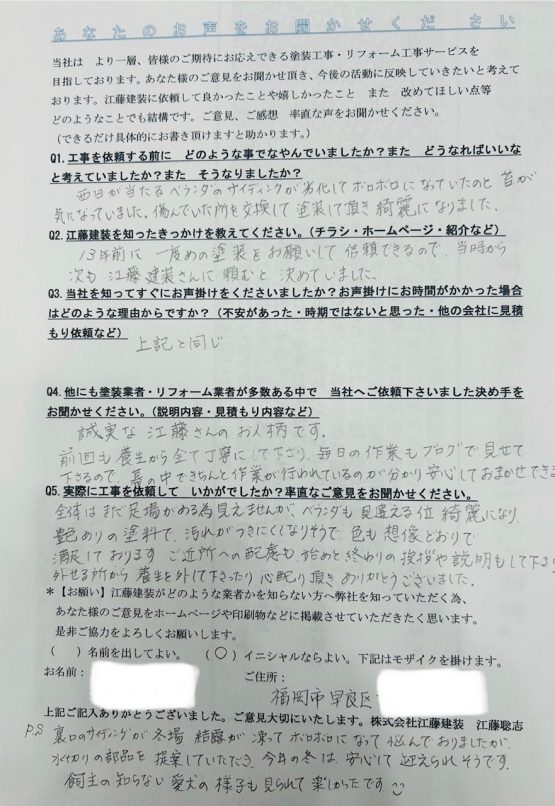 あなたのお声をお聞かせください
当社は　より一層、皆様のご期待にお応えできる塗装工事・リフォーム工事サービスを
目指しております。あなた様のご意見をお聞かせ頂き、今後の活動に反映していきたいと考えて
おります。江藤建装に依頼して良かったことや嬉しかったこと　また　改めてほしい点等
どのようなことでも結構です。ご意見、ご感想　率直な声をお聞かせください。
（できるだけ具体的にお書き頂けますと助かります。）
Q1.工事を依頼する前に　どのような事でなやんでいましたか？また　どうなればいいな
と考えていましたか？また　そうなりましたか？
西日が当たるベランダのサイディングが劣化してボロボロになっていたのと、苔が
気になっていました。傷んでいた所を交換して塗装して頂き綺麗になりました。
Q2.江藤建装を知ったきっかけを教えてください。（チラシ・ホームページ・紹介など）
13年前に一度めの塗装をお願いして信頼できるので、当時から
次も江藤建装さんに頼むと決めていました。
Q3.当社を知ってすぐにお声掛けをくださいましたか？お声掛けにお時間がかかった場合
はどのような理由からですか？（不安があった・時期ではないと思った・他の会社に見積
もり依頼など）
上記と同じ
Q4.他にも塗装業者・リフォーム業者が多数ある中で　当社へご依頼下さいました決め手を
お聞かせください。（説明内容・見積もり内容など）
誠実な江藤さんのお人柄です。
前回も養生から全て丁寧にして下さり、毎日の作業もブログで見せて
下さるので、幕の中できちんと作業が行われているのが分かり安心しておまかせできる
Q5.実際に工事を依頼して　いかがでしたか？率直なご意見をお聞かせください。
全体はまだ足場がある為見えませんが、ベランダも見違える位綺麗になり
艶ありの塗料で、汚れがつきにくくなりそうで色も想像どおりで
満足しております　ご近所への配慮も、始めと終わりの挨拶や説明もして下さり
外せる所から養生を外して下さったり心配り頂きありがとうございました。
＊【お願い】江藤建装がどのような業者かを知らない方へ弊社を知っていただく為、
あなた様のご意見をホームページや印刷物などに掲載させていただきたく思います。
是非ご協力をよろしくお願いします。
（　）名前を出してよい。（○）イニシャルならよい。下記はモザイクを掛けます。
お名前：　ご住所：
福岡市早良区
上記ご記入ありがとうございました。ご意見大切にいたします。株式会社江藤建装　江藤聡志
P.S 裏口のサイディングが冬場　結露が凍ってボロボロになって悩んでおりましたが、
水切りの部品を提案していただき、今年の冬は安心して迎えられそうです。
飼主の知らない愛犬の様子も見られて楽しかったです